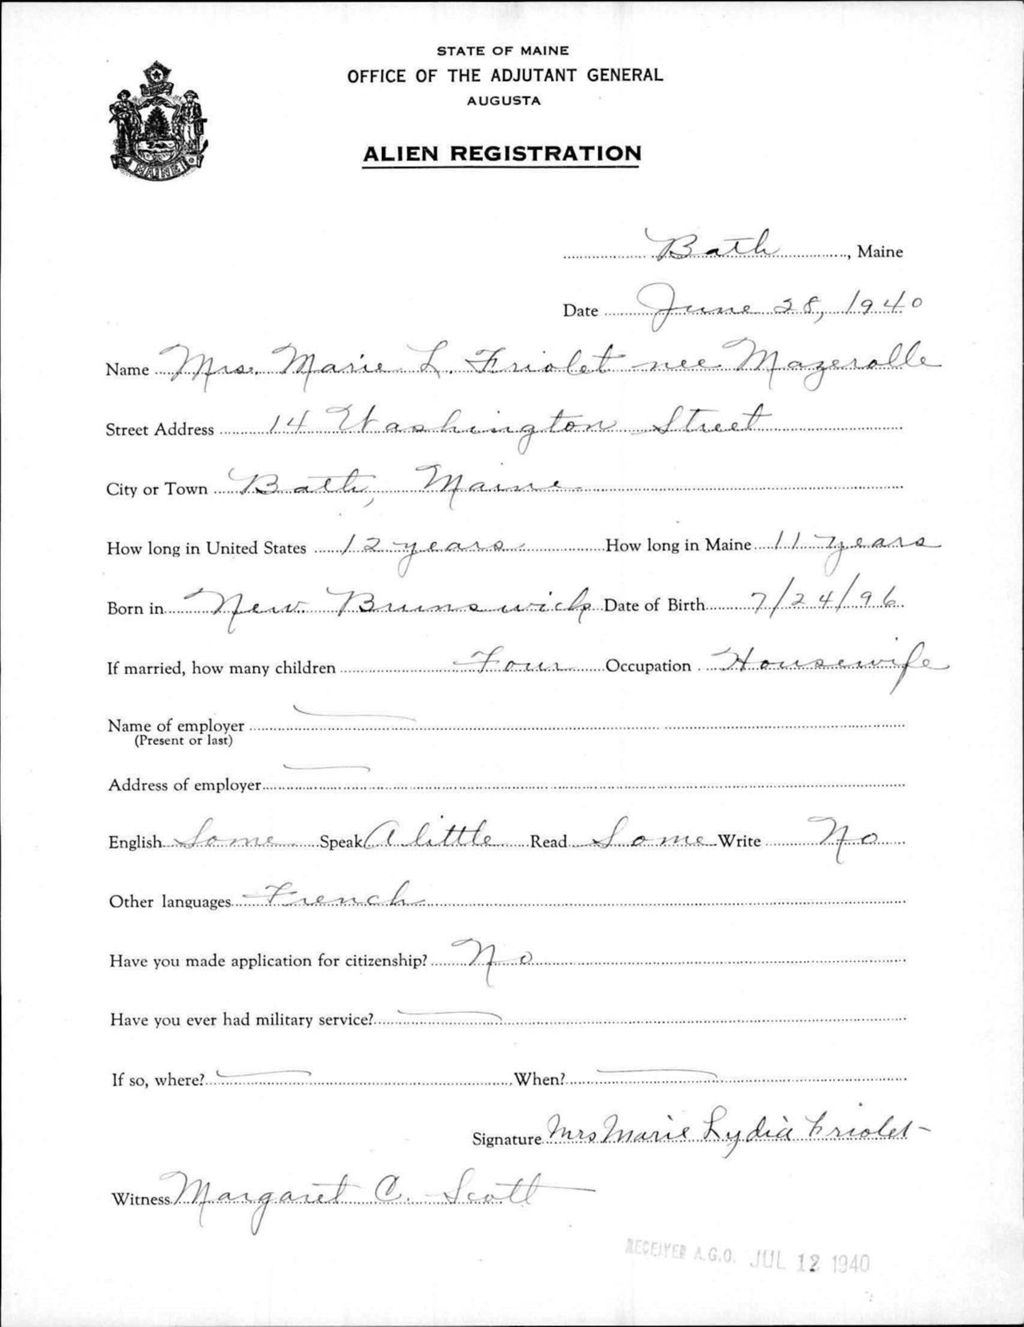 STATE OF MAINE
OFFICE OF THE ADJUTANT GENERAL
AUGUSTA
ALIEN REGISTRATION
MAINE
Bath, Maine
Date June 28, 1940
Name Mrs. Marie L. Friolet nee Mazerolle
Street Address 14 Washington Street
City or Town Bath, Maine
How long in United States 12 years How long in Maine 11 years
Born in New Brunswick Date of Birth 7/24/96
If married, how many children Four Occupation Housewife
Name of employer
(Present or last)
Address of employer
English Some Speak A little Read Some Write No
Other languages French
Have you made application for citizenship? No
Have you ever had military service?
If so, where? When?
Signature Mrs Marie Lydia Friolet
Witness Margaret C. Scott
RECEIVED A.G.O. JUL 12 1940